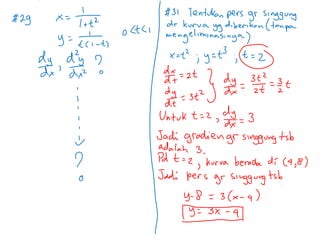 #29 x = 1/(1+t²)
y = 1/(t(1-t)) 0<t<1
dy/dx, d²y/dx² ?
?
#31 Tentukan pers gr singgung
dr kurva yg diberikan (tanpa
mengeliminasinya)
x=t² ; y=t³, t=2
dx/dt = 2t
dy/dt = 3t²
dy/dx = 3t²/2t = 3/2 t
Untuk t=2, dy/dx = 3
Jadi gradien gr singgung tsb
adalah 3.
Pd t=2, kurva berada di (4,8)
Jadi pers gr singgung tsb
y-8 = 3(x-4)
y = 3x - 4